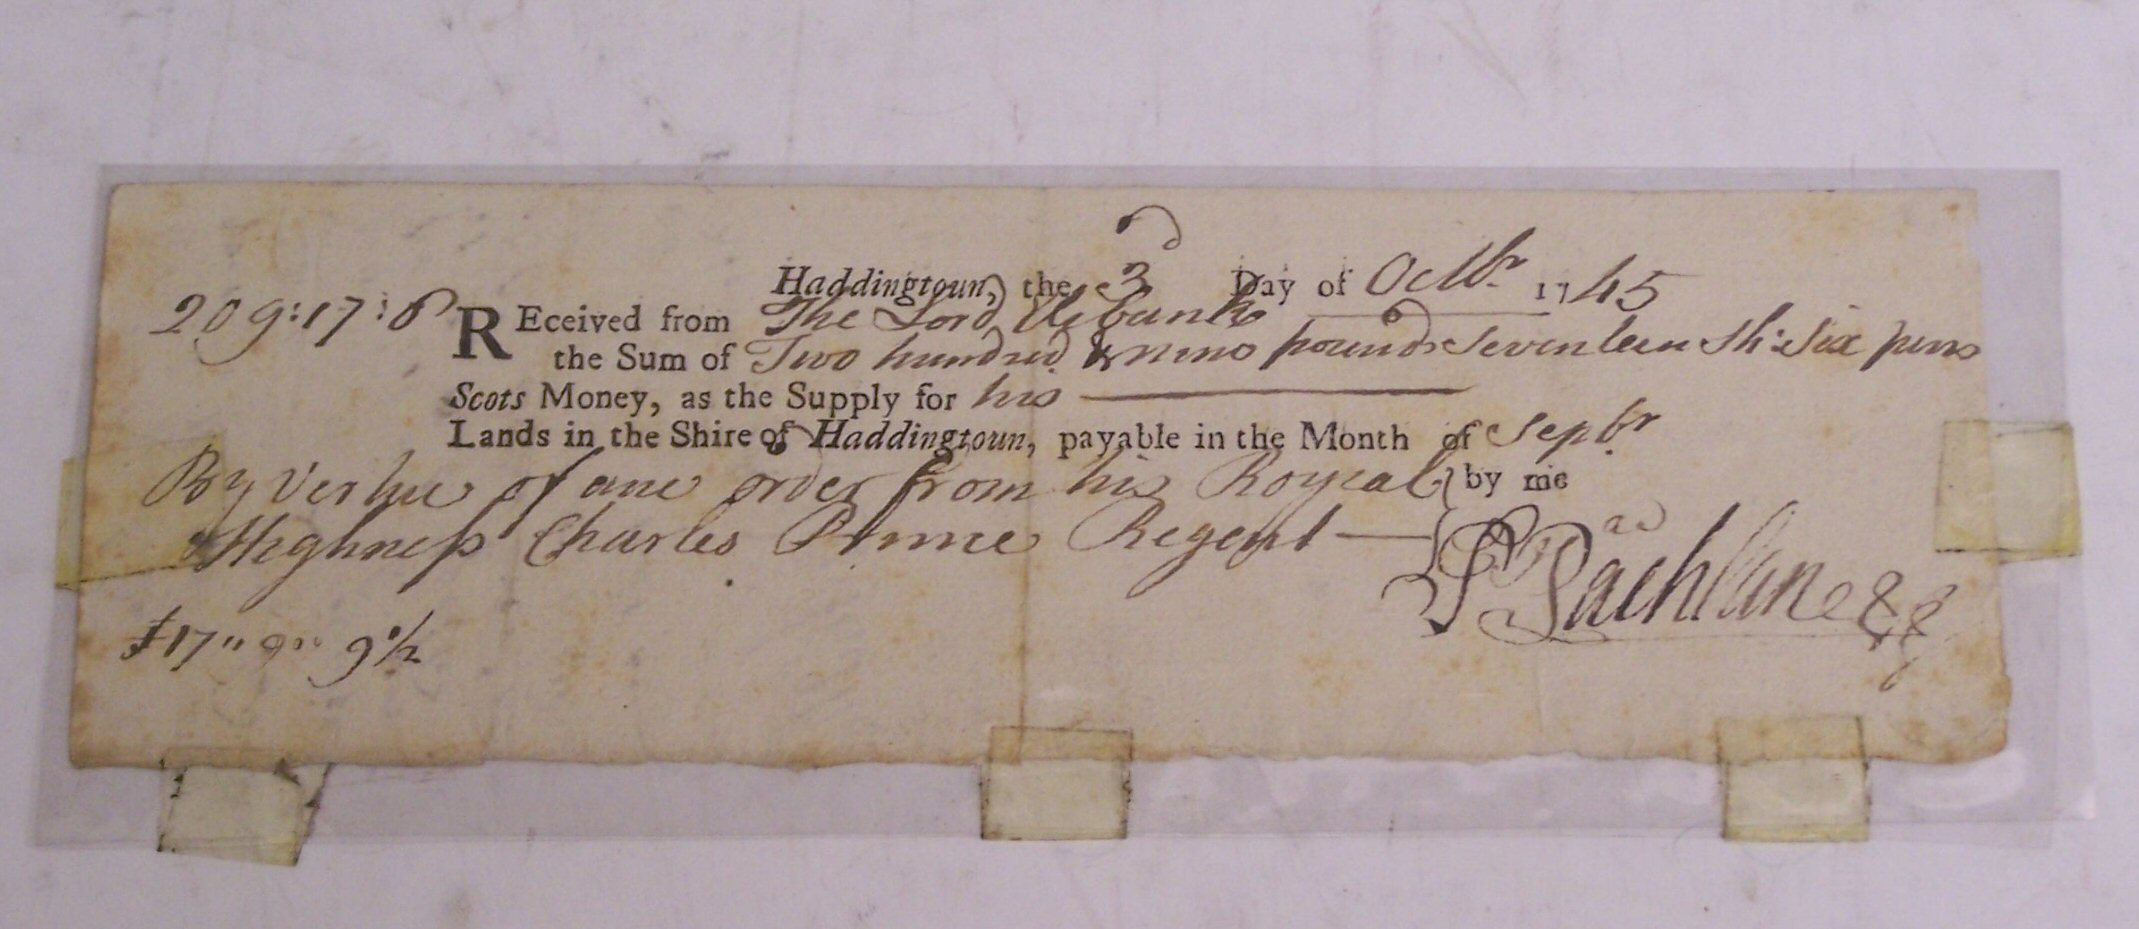 Haddingtoun, the 3 Day of Octbr 1745
209:17:6 REceived from The Lord Elibank
the Sum of Two hundred & nine pounds Seventeen sh: Six penns
Scots Money, as the Supply for his
Lands in the Shire of Haddingtoun, payable in the Month of Sepbr
By Vertue of ane order from his Royeal } by me
Highness Charles Prince Regent
£17" 9" 9½